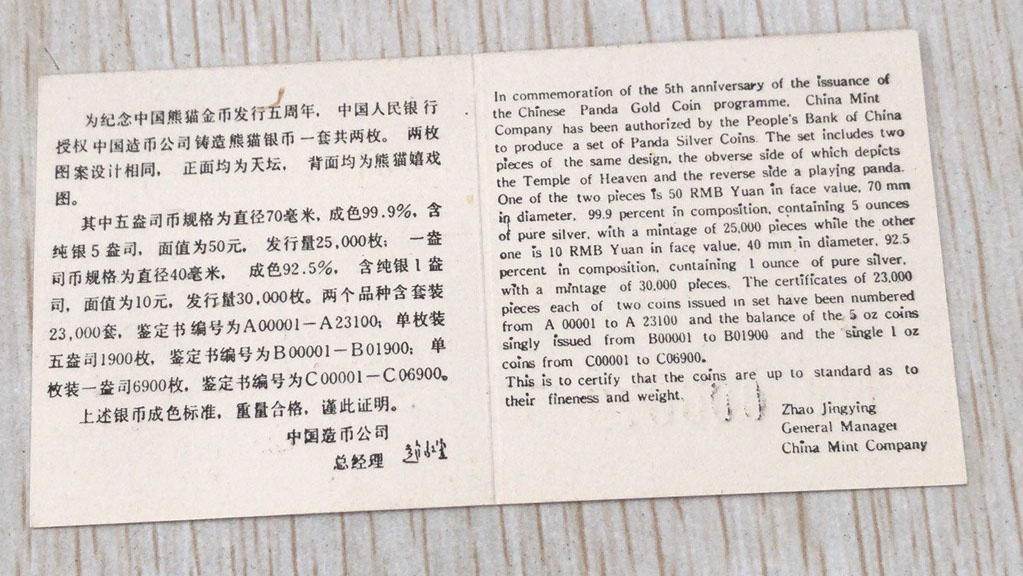 为纪念中国熊猫金币发行五周年，中国人民银行
授权中国造币公司铸造熊猫银币一套共两枚。两枚
图案设计相同，正面均为天坛，背面均为熊猫嬉戏
图。
其中五盎司币规格为直径70毫米，成色99.9%，含
纯银5盎司，面值为50元，发行量25,000枚；一盎
司币规格为直径40毫米，成色92.5%，含纯银1盎
司，面值为10元，发行量30,000枚。两个品种含套装
23,000套，鉴定书编号为A00001－A23100；单枚装
五盎司1900枚，鉴定书编号为B00001－B01900；单
枚装一盎司6900枚，鉴定书编号为C00001－C06900。
上述银币成色标准，重量合格，谨此证明。
中国造币公司
总经理
In commemoration of the 5th anniversary of the issuance of
the Chinese Panda Gold Coin programme, China Mint
Company has been authorized by the People's Bank of China
to produce a set of Panda Silver Coins. The set includes two
pieces of the same design, the obverse side of which depicts
the Temple of Heaven and the reverse side a playing panda.
One of the two pieces is 50 RMB Yuan in face value, 70 mm
in diameter, 99.9 percent in composition, containing 5 ounces
of pure silver, with a mintage of 25,000 pieces while the other
one is 10 RMB Yuan in face value, 40 mm in diameter, 92.5
percent in composition, containing 1 ounce of pure silver,
with a mintage of 30,000 pieces. The certificates of 23,000
pieces each of two coins issued in set have been numbered
from A 00001 to A 23100 and the balance of the 5 oz coins
singly issued from B00001 to B01900 and the single 1 oz
coins from C00001 to C06900.
This is to certify that the coins are up to standard as to
their fineness and weight.
Zhao Jingying
General Manager
China Mint Company